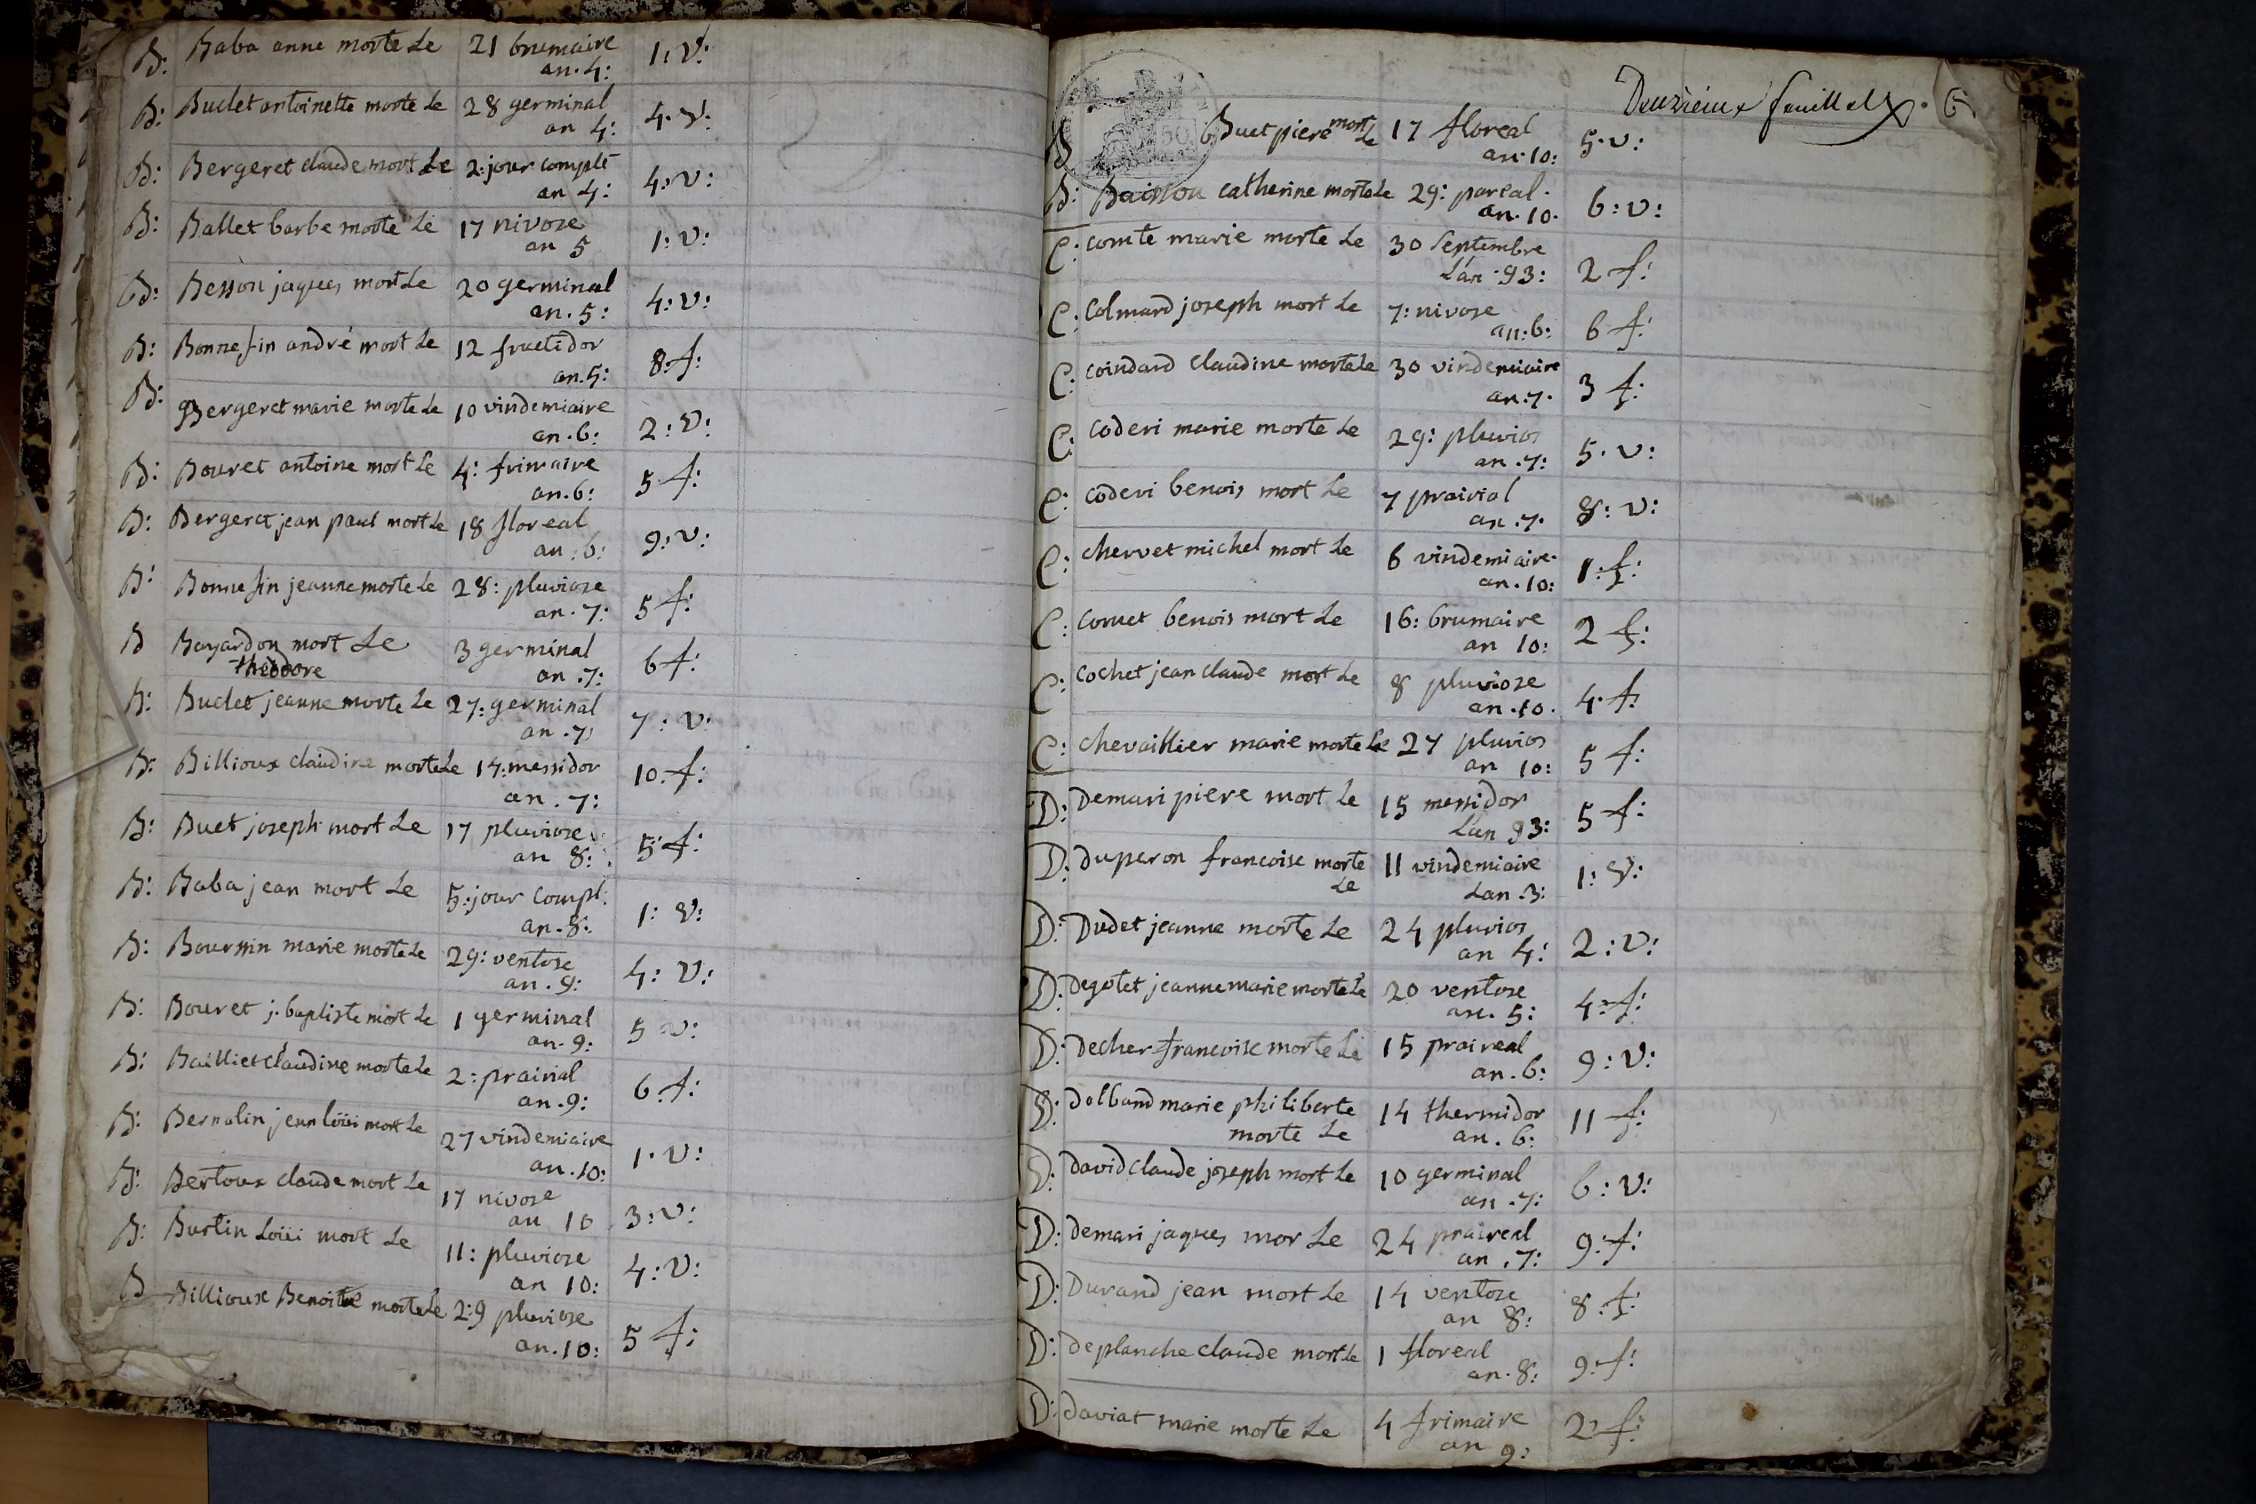 B: Baba anne morte Le 21 brumaire 1: V:
an. 4:
B: Buclet antoinette morte Le 28 germinal 4. V:
an 4:
B: Bergeret claude mort Le 2: jour complt 4: V:
an 4:
B: Ballet barbe morte Le 17 nivose 1: V:
an 5
B: Besson jaques mort Le 20 germinal 4: V:
an. 5:
B: Bonnefin andré mort Le 12 fructidor 8: f:
an. 5:
B: Bergeret marie morte Le 10 vindemiaire 2: V:
an. 6:
B: Bouret antoine mort Le 4: frimaire 5 f:
an. 6:
B: Bergeret jean paul mort Le 18 floreal 9: V:
an. 6:
B: Bonnefin jeanne morte Le 28: pluviose 5 f:
an. 7:
B Bayardon mort Le 3 germinal 6 f:
théodore an. 7:
B: Buclet jeanne morte Le 27: germinal 7: V:
an. 7:
B: Billioux claudine morte Le 14: messidor 10. f:
an. 7:
B: Buet joseph mort Le 17 pluviose 5 f:
an 8:
B: Baba jean mort Le 5: jour compl: 1: V:
an. 8:
B: Boursin marie morte Le 29: ventose 4: V:
an. 9:
B: Bouret j. baptiste mort Le 1 germinal 5 V:
an. 9:
B: Bailliet claudine morte Le 2: prairial 6. f:
an. 9:
B: Bernalin jean Loüi mort Le 27 vindemiaire 1. V:
an. 10:
B: Bertoux claude mort Le 17 nivose 3: V:
an 10
B: Burtin Loüi mort Le 11: pluviose 4: V:
an 10:
B Billioux Benoite morte Le 29 pluviose 5 f:
an. 10:
Deuxieme feuillet 6
B Buet piere mort Le 17 floreal 5. V:
an. 10:
B: catherine morte Le 29: pareal. 6: V:
an. 10.
C: comte marie morte Le 30 septembre 2 f:
L'an 93:
C: Colmard joseph mort Le 7: nivose 6 f:
an: 6:
C: coindard claudine morte Le 30 vindemiaire 3 f:
an. 7.
C: coderi marie morte Le 29: pluvios 5. V:
an. 7:
C: coderi benois mort Le 7 prairial 8: V:
an. 7.
C: chervet michel mort Le 6 vindemiaire. 1: f:
an. 10:
C: cornet benois mort Le 16: brumaire 2 f:
an 10:
C: cochet jean claude mort Le 8 pluviose 4. f:
an. 10.
C: chevaillier marie morte Le 27 pluvios 5 f:
an 10:
D: Demari piere mort Le 15 messidor 5 f:
L'an 93:
D: duperon francoise morte 11 vindemiaire 1: V:
Le Lan. 3:
D: Dudet jeanne morte Le 24 pluvios 2: V:
an 4:
D: degotet jeanne marie morte Le 20 ventose 4: f:
an. 5:
D: decher francoise morte Le 15 praireal 9: V:
an. 6:
D: dolband marie philiberte 14 thermidor 11 f:
morte Le an. 6:
D: david claude joseph mort Le 10 germinal 6: V:
an. 7:
D: demari jaques mor Le 24 praireal 9: f:
an. 7:
D: Durand jean mort Le 14 ventose 8: f:
an 8:
D: deplanche claude mort Le 1 floreal 9. f:
an. 8:
D: daviat marie morte Le 4 frimaire 2 f:
an 9: